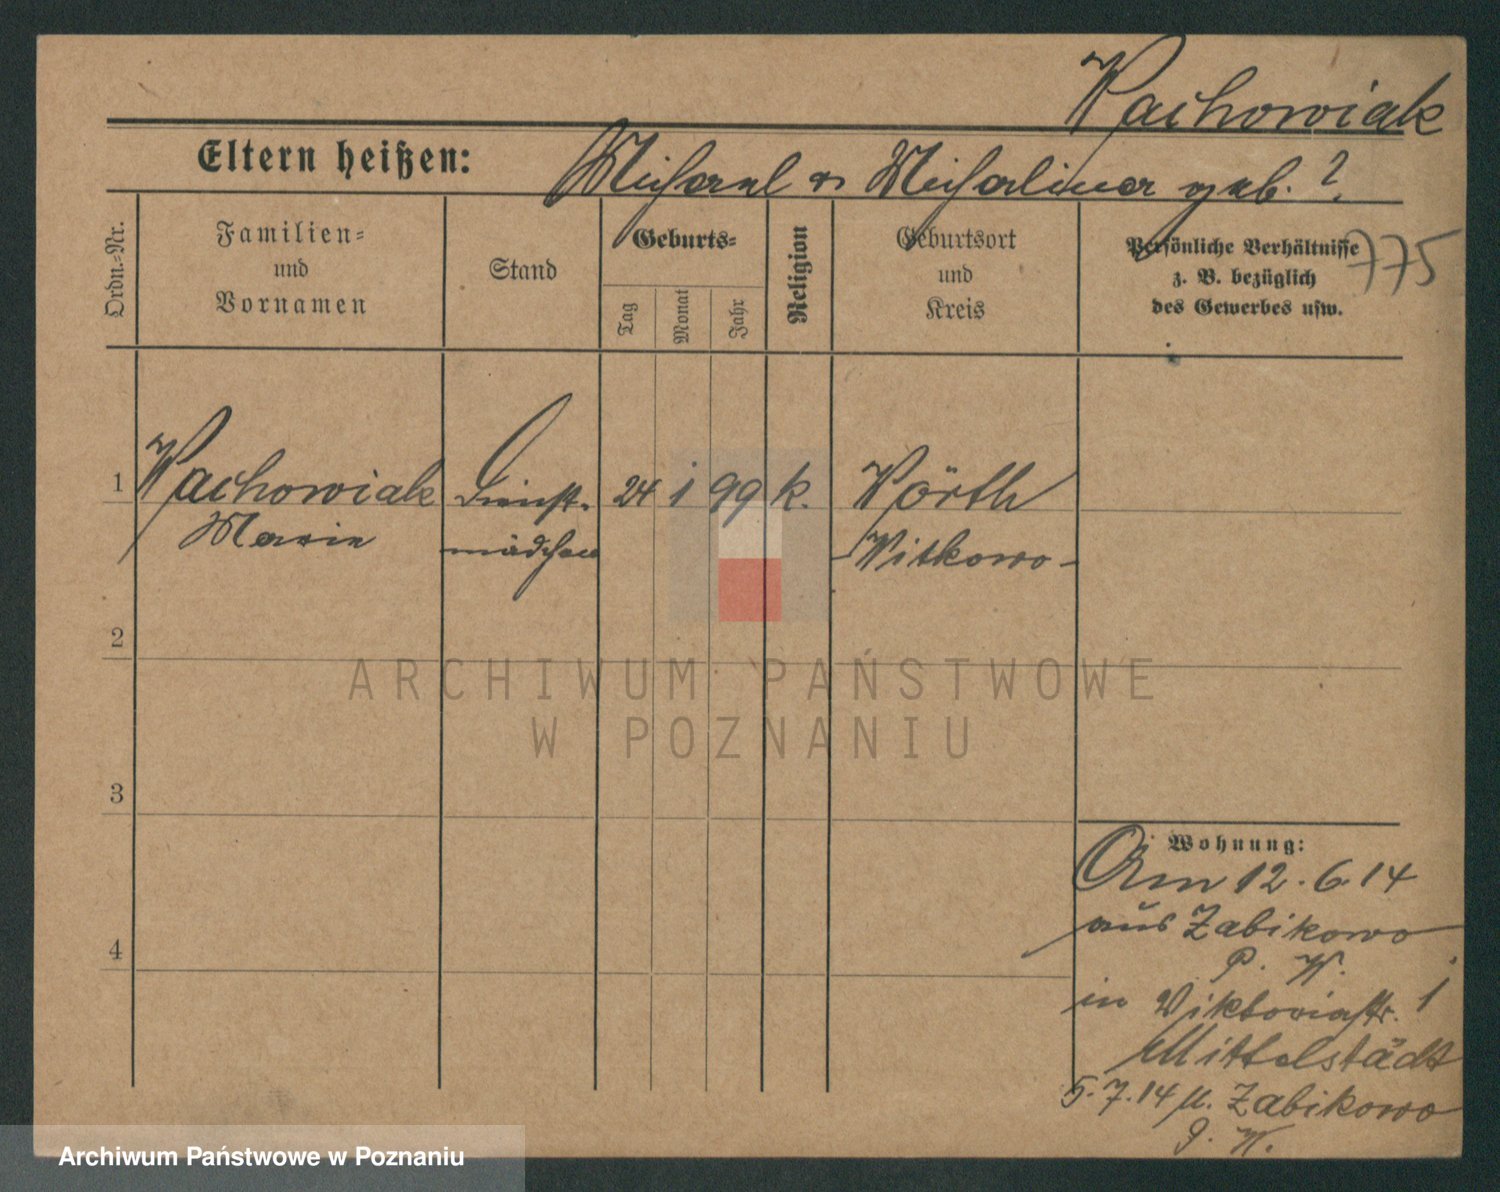 Wachowiak
Eltern heißen: Michael u Michalina geb. ?
Ordn.-Nr.
Familien-
und
Vornamen
Stand
Geburts-
Tag
Monat
Jahr
Religion
Geburtsort
und
Kreis
Persönliche Verhältnisse
z. B. bezüglich
des Gewerbes usw.
775
1 Wachowiak Dienst- 24 1 99 k. Wörth
Marie mädchen Witkowo
2
3
4
Wohnung:
Am 12.6.14
aus Zabikowo
P. W.
in Viktoriastr. 1
Mittelstädt
5.7.14 n. Zabikowo
P. W.
ARCHIWUM PAŃSTWOWE
W POZNANIU
Archiwum Państwowe w Poznaniu